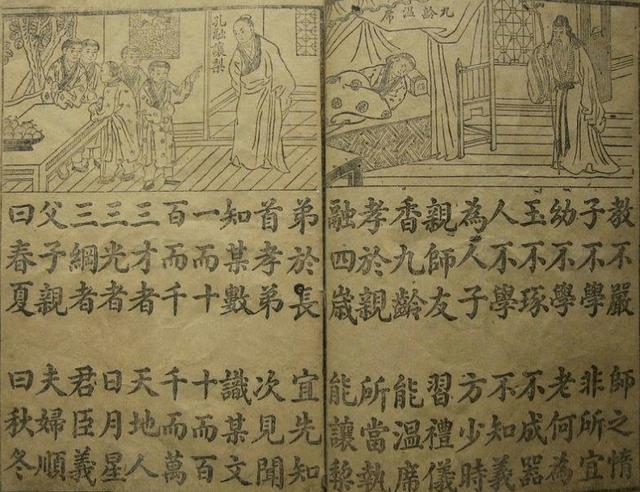 九齡溫席
教不嚴 師之惰
子不學 非所宜
幼不學 老何為
玉不琢 不成器
人不學 不知義
為人子 方少時
親師友 習禮儀
香九齡 能溫席
孝於親 所當執
融四歲 能讓棃
孔融讓梨
弟於長 宜先知
首孝弟 次見聞
知某數 識某文
一而十 十而百
百而千 千而萬
三才者 天地人
三光者 日月星
三綱者 君臣義
父子親 夫婦順
曰春夏 曰秋冬